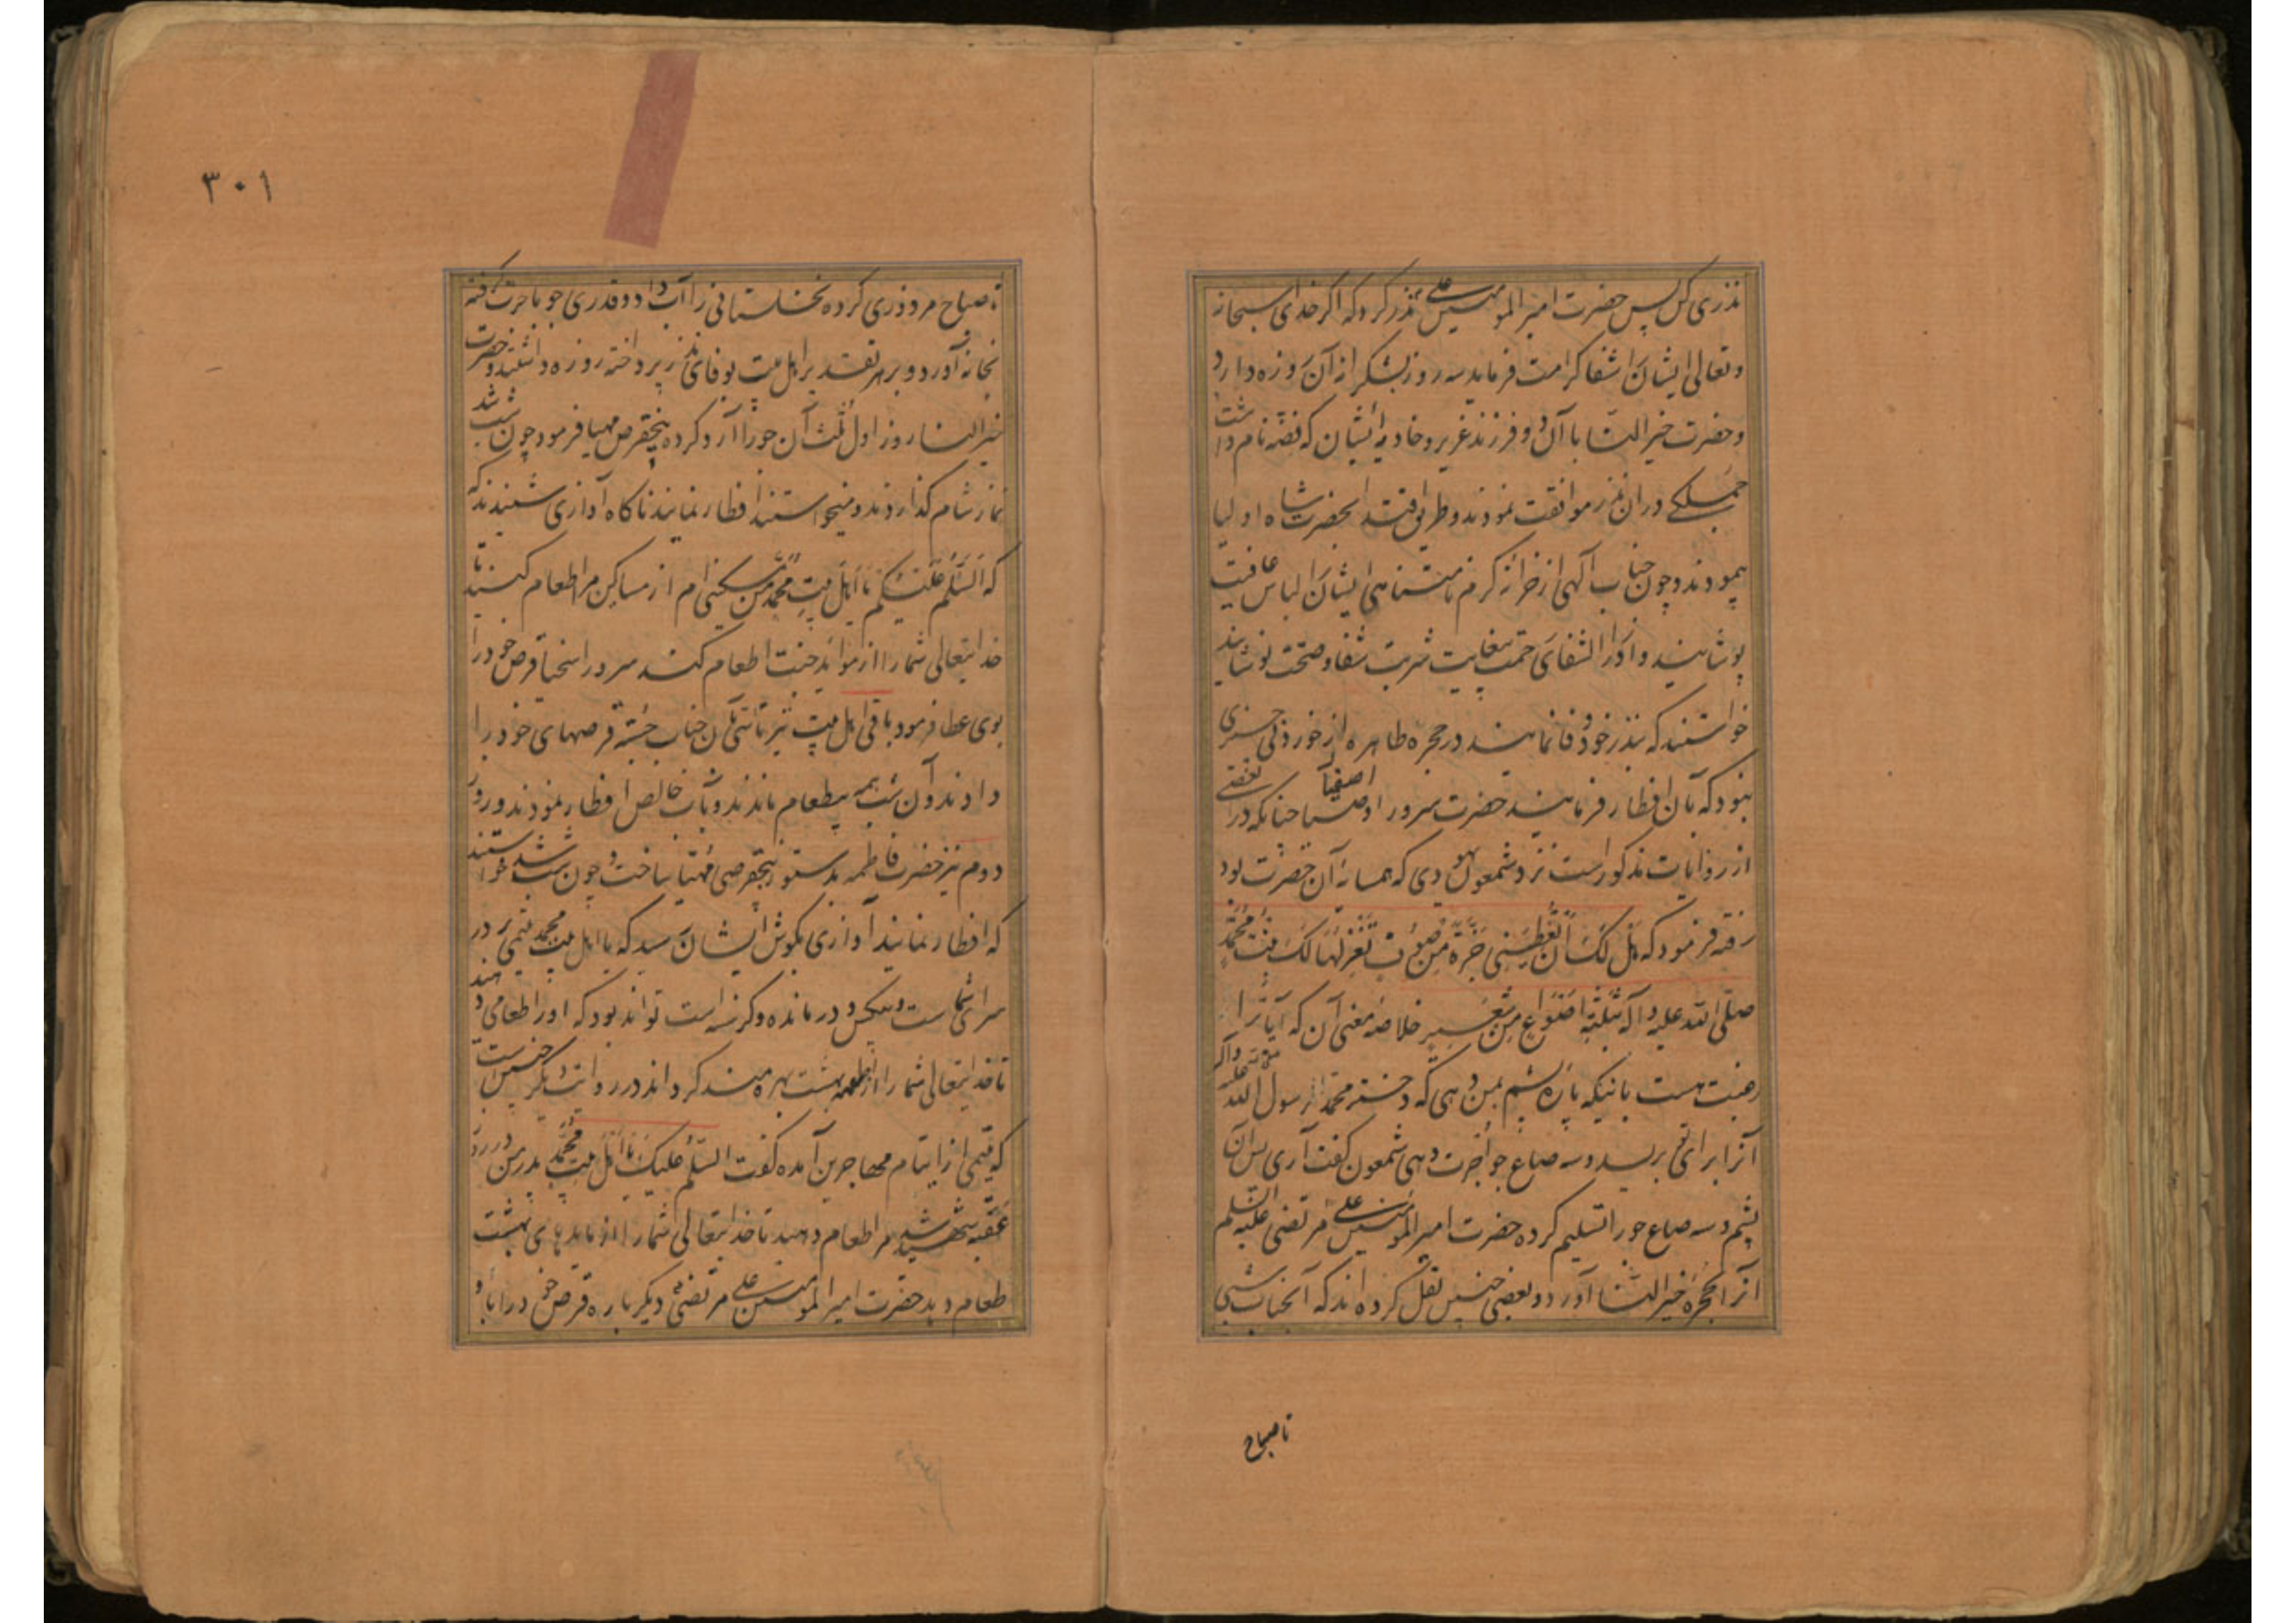 نذری کن پس حضرت امیر المومنین علی نذر کرد که اکر خدای سبحانه
و تعالی ایشان را شفا کرامت فرماید سه روز بشکرانه آن روزه دارد
و حضرت خیر النسا با آن دو فرزند عزیز و خادمه ایشان که فضه نام داشت
جملکی در ان نذر موافقت نمودند و طریق اقتدا بحضرت شاه اولیا
پیمودند و چون جناب آلهی از خزانه کرم نامتناهی ایشان را لباس عافیت
پوشانید و از دار الشفای رحمت بیغایت شربت شفا و صحت نوشانید
خواستند که بنذر خود وفا نمایند در حجره طاهره از خوردنی چیزی
نبود که بان افطار فرمایند حضرت سرور اوصیا اصفیا چنانکه در بعضی
از روایات مذکور است نزد شمعون یهودی که همسایه آن حضرت بود
رفته فرمود که هَل لَکَ اَن تُعْطِیَنی جَزَّةً مِن صُوفٍ تَغْزِلُهَا لَکَ بِنْتُ مُحَمَّدٍ
صلّی الله علیه و آله بثلثة اَصْوُاعٍ مِن شَعِیر خلاصه معنی آن که آیا ترا
رغبت هست بانیکه پاره پشم بمن دهی که دختر محمد رسول الله صلی الله علیه و آله
آنرا برای تو بریسد و سه صاع جو اجرت دهی شمعون کفت آری پس آن
پشم و سه صاع جو را تسلیم کرده حضرت امیر المومنین علی مرتضی علیه السلم
آنرا بحجره خیر النسا آورد و بعضی چنین نقل کرده اند که آنجناب شبی
تا صباح
۳۰۱
تا صباح مزدوری کرده نخلستانی را آب داد و قدری جو باجرت کرفته
بخانه آورد و بر هر تقدیر اهل بیت بوفای نذر پرداخته روزه داشتند و حضرت
خیر النسا روز اول ثلث آن جو را آرد کرده پنج قرص مهیا فرمود چون شب شد
نماز شام کذاردند و میخواستند افطار نمایند ناکاه آوازی شنیدند که
که السَّلم علیکم یا اَهلَ بیتِ مُحمّد من مسکینی ام از مساکین مرا اطعام کنید تا
خدایتعالی شما را از مواید جنت اطعام کند سرور اسخیا قرص خود را
بوی عطا فرمود باقی اهل بیت نیز تاسی بآن جناب جسته قرصهای خود را
دادند و آن شب همه بیطعام ماندند و بآب خالص افطار نمودند و روز
دوم نیز حضرت فاطمه بدستور پنج قرصی مهیا ساخت و چون شب شد خواستند
که افطار نمایند آوازی بکوش ایشان رسید که یا اهل بیت محمد یتیمی بر در
سرای شما است و بیکس و درمانده و کرسنه است تواند بود که او را طعامی دهند
تا خدایتعالی شما را از اطعمه بهشت بهره مند کرداند در روایت دیکر چنین است
که یتیمی از ایتام مهاجرین آمده کفت السّلم علیک یا اهل بیت مُحمَّد پدر من در روز
عقبه شهید شد مرا طعام دهید تا خدایتعالی شما را از مایدهای بهشت
طعام دهد حضرت امیر المومنین علی مرتضی دیکر باره قرص خود را باو